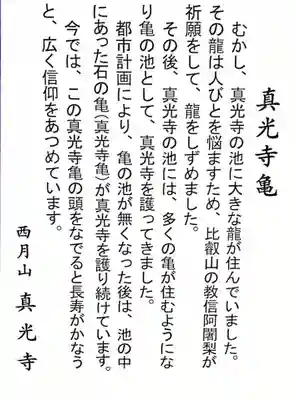 真光寺亀
むかし、真光寺の池に大きな龍が住んでいました。
その龍は人びとを悩ますため、比叡山の教信阿闍梨が
祈願をして、龍をしずめました。
その後、真光寺の池には、多くの亀が住むようにな
り亀の池として、真光寺を護ってきました。
都市計画により、亀の池が無くなった後は、池の中
にあった石の亀(真光寺亀)が真光寺を護り続けています。
今では、この真光寺亀の頭をなでると長寿がかなう
と、広く信仰をあつめています。
西月山 真光寺